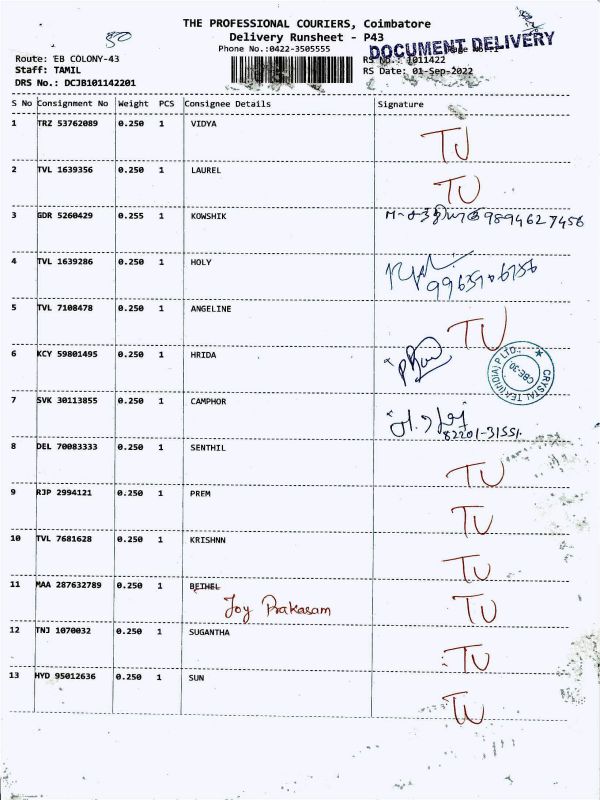 80
THE PROFESSIONAL COURIERS, Coimbatore
Delivery Runsheet - P43
Phone No.:0422-3505555
DOCUMENT DELIVERY
Route: EB COLONY-43
Staff: TAMIL
DRS No.: DCJB101142201
RS No.: 1011422
RS Date: 01-Sep-2022
S No Consignment No Weight PCS Consignee Details Signature
1 TRZ 53762089 0.250 1 VIDYA TU
2 TVL 1639356 0.250 1 LAUREL TU
3 GDR 5260429 0.255 1 KOWSHIK 9894627456
4 TVL 1639286 0.250 1 HOLY
5 TVL 7108478 0.250 1 ANGELINE TU
6 KCY 59801495 0.250 1 HRIDA
CRYSTAL TEK (INDIA) P LTD., CBE-30
7 SVK 30113855 0.250 1 CAMPHOR
82201-31551
8 DEL 70083333 0.250 1 SENTHIL TU
9 RJP 2994121 0.250 1 PREM TU
10 TVL 7681628 0.250 1 KRISHNN TU
11 MAA 287632789 0.250 1 BETHEL TU
Joy Prakasam
12 TNJ 1070032 0.250 1 SUGANTHA TU
13 HYD 95012636 0.250 1 SUN TU